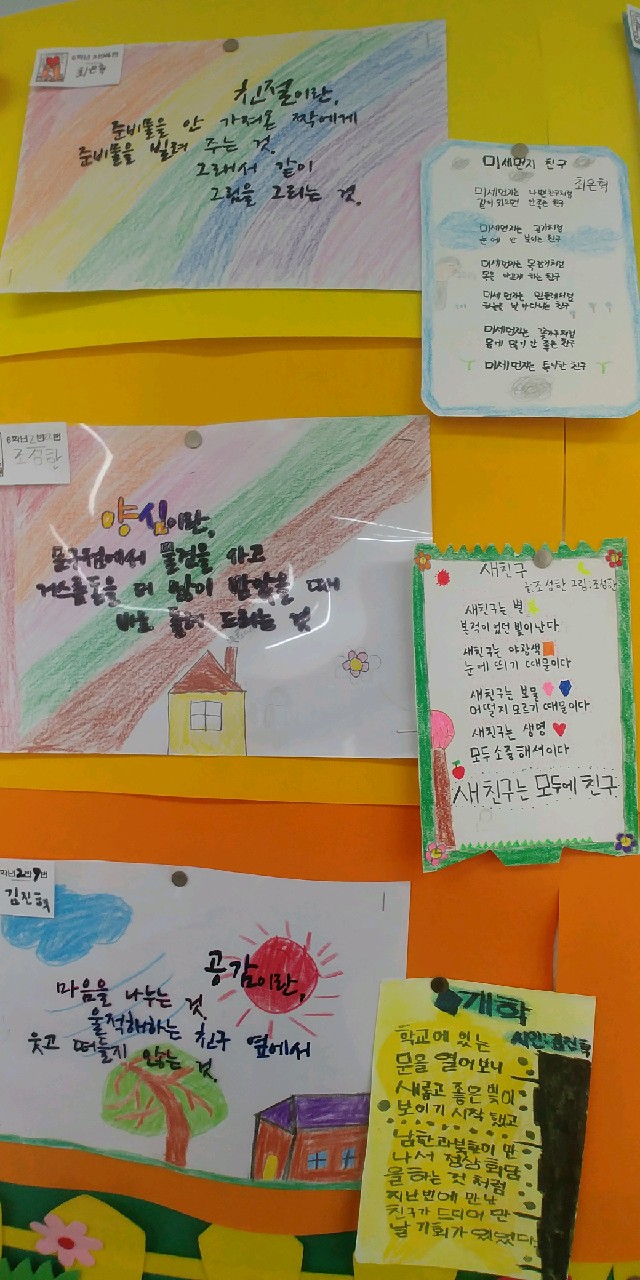 최은혁
친절이란,
준비물을 안 가져온 짝에게
준비물을 빌려 주는 것.
그래서 같이
그림을 그리는 것.
미세먼지 친구
최은혁
미세먼지는 나쁜친구처럼
같이 있으면 안좋은 친구
미세먼지는 공기처럼
눈에 안 보이는 친구
미세먼지는 목감기처럼
목을 아프게 하는 친구
미세먼지는 민들레처럼
하늘을 날아다니는 친구
미세먼지는
몸에 많기 안 좋은 친구
미세먼지는 특이한 친구
6학년 2반
조성한
양심이란,
문구점에서 물건을 사고
거스름돈을 더 많이 받았을 때
바로 돌려 드리는 것
새친구
글:조성한 그림:조성한
새친구는 별
본적이 없던 빛이난다
새친구는 야광색
눈에 띄기 때문이다
새친구는 보물
어떨지 모르기 때문이다
새친구는 생명
모두 소중해서이다
새친구는 모두에 친구
학년 2반 9번
김진혁
공감이란,
마음을 나누는 것.
울적해하는 친구 옆에서
웃고 떠들지 않는 것.
개학
시인:김진혁
학교에 있는
문을 열어보니
새롭고 좋은 빛이
보이기 시작 했고
남한과 북한이 만
나서 정상 회담
을 하는 것 처럼
지난번에 만난
친구가 드디어 만
날 기회가 있었다